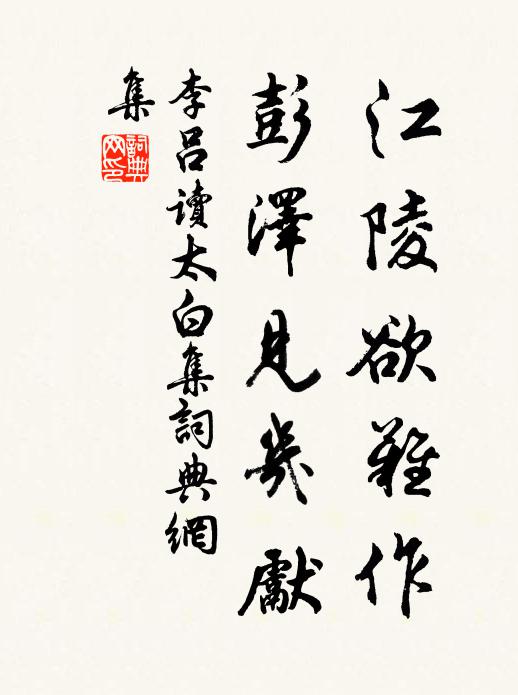 江陵欲難作
彭澤見幾獻
李呂讀太白集詞典網
集
詞典網印